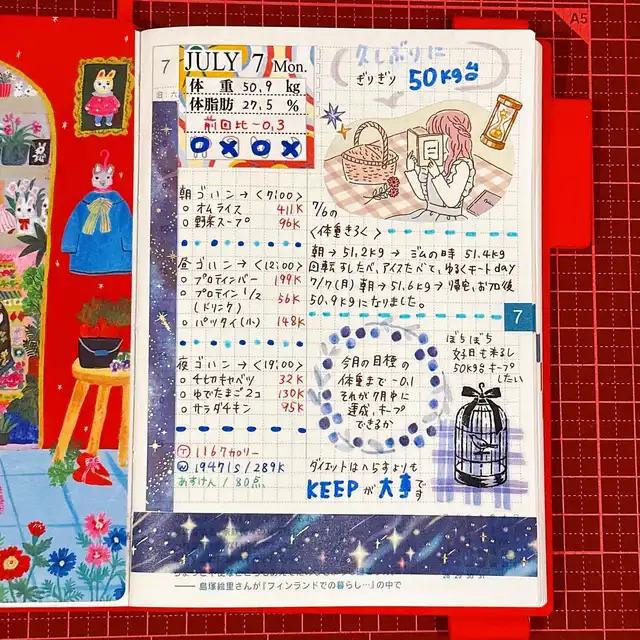 A5
7
JULY 7 Mon.
体 重 50.9 kg
体脂肪 27.5 %
前回比 -0.3
朝ゴハン→〈7:00〉
○ オムライス 411K
○ 野菜スープ 96K
昼ゴハン→〈12:00〉
○ プロテインバー 199K
○ プロテイン 1/2 56K
(ドリンク)
○ パッタイ(小) 148K
夜ゴハン→〈19:00〉
○ 千切キャベツ 32K
○ ゆでたまご2コ 130K
○ サラダチキン 95K
Ⓣ 1167カロリー
Ⓦ 19471S/289K
あすけん/80点
久しぶりに
ぎりぎり 50kg台
7/6の
〈体重きろく〉
朝→51.2kg→ジムの時 51.4kg
回転すしたべ、アイスたべて、ゆるくチートday
7/7(月)朝→51.6kg→帰宅、お风呂後
50.9kgになりました。
7
今月の目標の
体重まで-0.1
それが7月中に
達成、キープ
できるか
ぼちぼち
女子日も来るし
50kg台キープ
したい
ダイエットはへらすよりも
KEEPが大事です
28 29 30 31
—— 島塚絵里さんが『フィンランドでの暮らし…』の中で